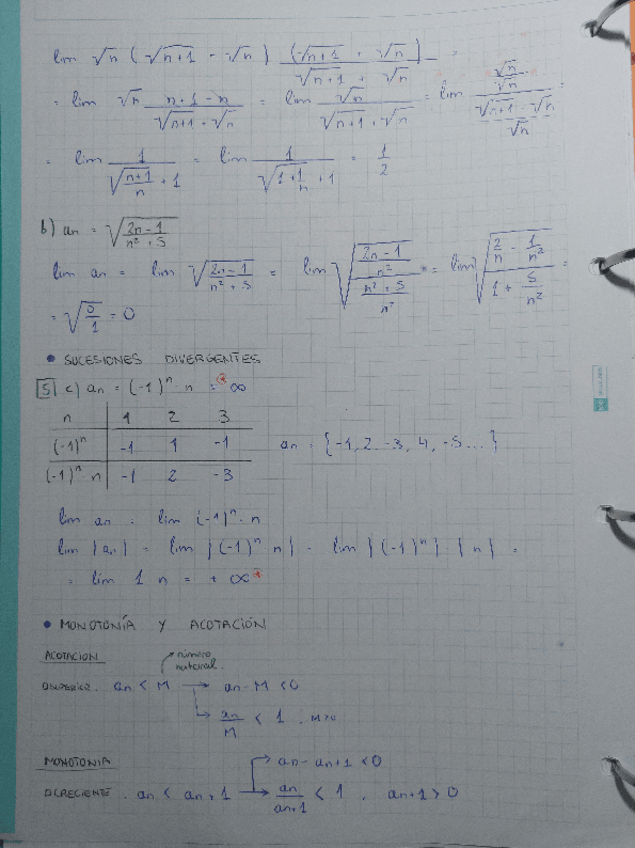 lim √n (√(n+1) - √n) (√(n+1) + √n) / (√(n+1) + √n) =
= lim √n (n+1-n) / (√(n+1) + √n) = lim √n / (√(n+1) + √n) = lim (√n/√n) / ((√(n+1) + √n)/√n) =
= lim 1 / (√((n+1)/n) + 1) = lim 1 / (√(1 + 1/n) + 1) = 1/2
b) an = √((2n-1)/(n²+5))
lim an = lim √((2n-1)/(n²+5)) = lim √(((2n-1)/n²)/((n²+5)/n²)) = lim √((2/n - 1/n²)/(1 + 5/n²)) =
= √(0/1) = 0
• SUCESIONES DIVERGENTES
5 c) an = (-1)ⁿ · n = * ∞
n 1 2 3
(-1)ⁿ -1 1 -1 an = {-1, 2, -3, 4, -5...}
(-1)ⁿ · n -1 2 -3
lim an = lim (-1)ⁿ · n
lim |an| = lim |(-1)ⁿ · n| = lim |(-1)ⁿ| · |n| =
= lim 1 · n = +∞*
• MONOTONÍA Y ACOTACIÓN
ACOTACION
número
natural.
an < M → an - M < 0
↳ an/M < 1, M>0
MONOTONIA
→ an - an+1 < 0
CRECIENTE. an < an+1 → an/an+1 < 1, an+1 > 0